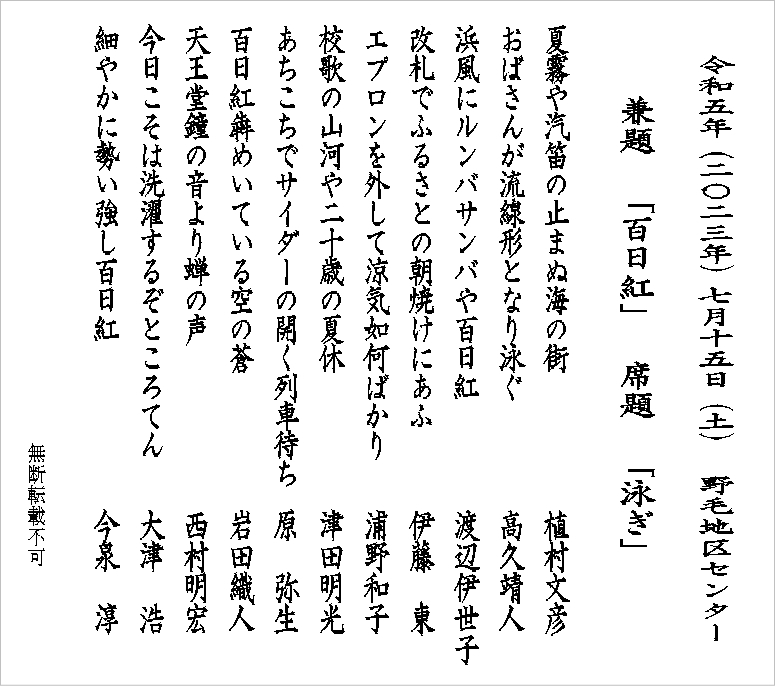 令和五年（二〇二三年）七月十五日（土） 野毛地区センター
兼題 「百日紅」 席題 「泳ぎ」
夏霧や汽笛の止まぬ海の街 植村文彦
おばさんが流線形となり泳ぐ 高久靖人
浜風にルンバサンバや百日紅 渡辺伊世子
改札でふるさとの朝焼けにあふ 伊藤 東
エプロンを外して涼気如何ばかり 浦野和子
校歌の山河や二十歳の夏休 津田明光
あちこちでサイダーの開く列車待ち 原 弥生
百日紅犇めいている空の蒼 岩田織人
天王堂鐘の音より蝉の声 西村明宏
今日こそは洗濯するぞところてん 大津 浩
細やかに勢い強し百日紅 今泉 淳
無断転載不可